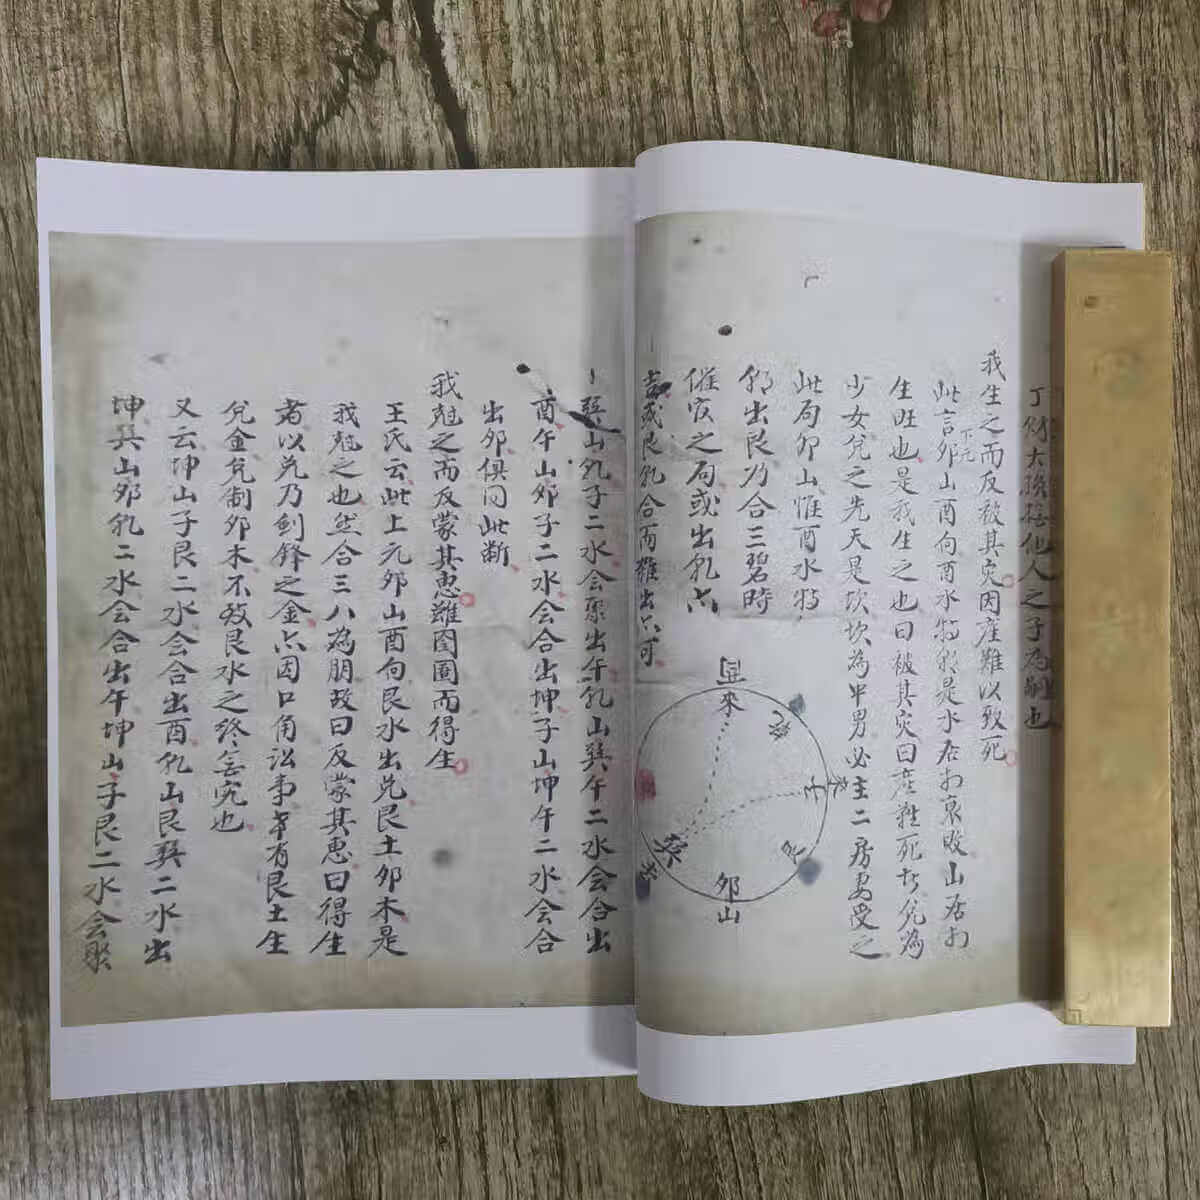 丁財大發揚他人之子為嗣也
我生之而反被其災因產難以致死
此言夘山酉向酉水特朝是水居
下元
生旺也是我生之也曰被其災曰產難死者兌為
少女兌之先天是坎坎為中男必主二房妻受之
此局夘山惟酉水特
朝出艮乃合三碧時
催官之局或出乹六
吉或艮乹合而雜出六可
來
夘山
巽山乹子二水会聚出午乹山巽午二水会合出
酉午山夘子二水会合出坤子山坤午二水会合
出夘俱同此斷
我尅之而反蒙其惠雖囹圄而得生
王氏云此上元夘山酉向艮水出兌艮土夘木是
我尅之也然合三八為朋故曰反蒙其惠曰得生
者以兌乃剑鋒之金六因口角訟事幸有艮土生
兌金兌制夘木不致艮水之终妄究也
又云坤山子艮二水会合出酉乹山艮巽二水出
坤巽山夘乹二水会合出午坤山子艮二水会聚